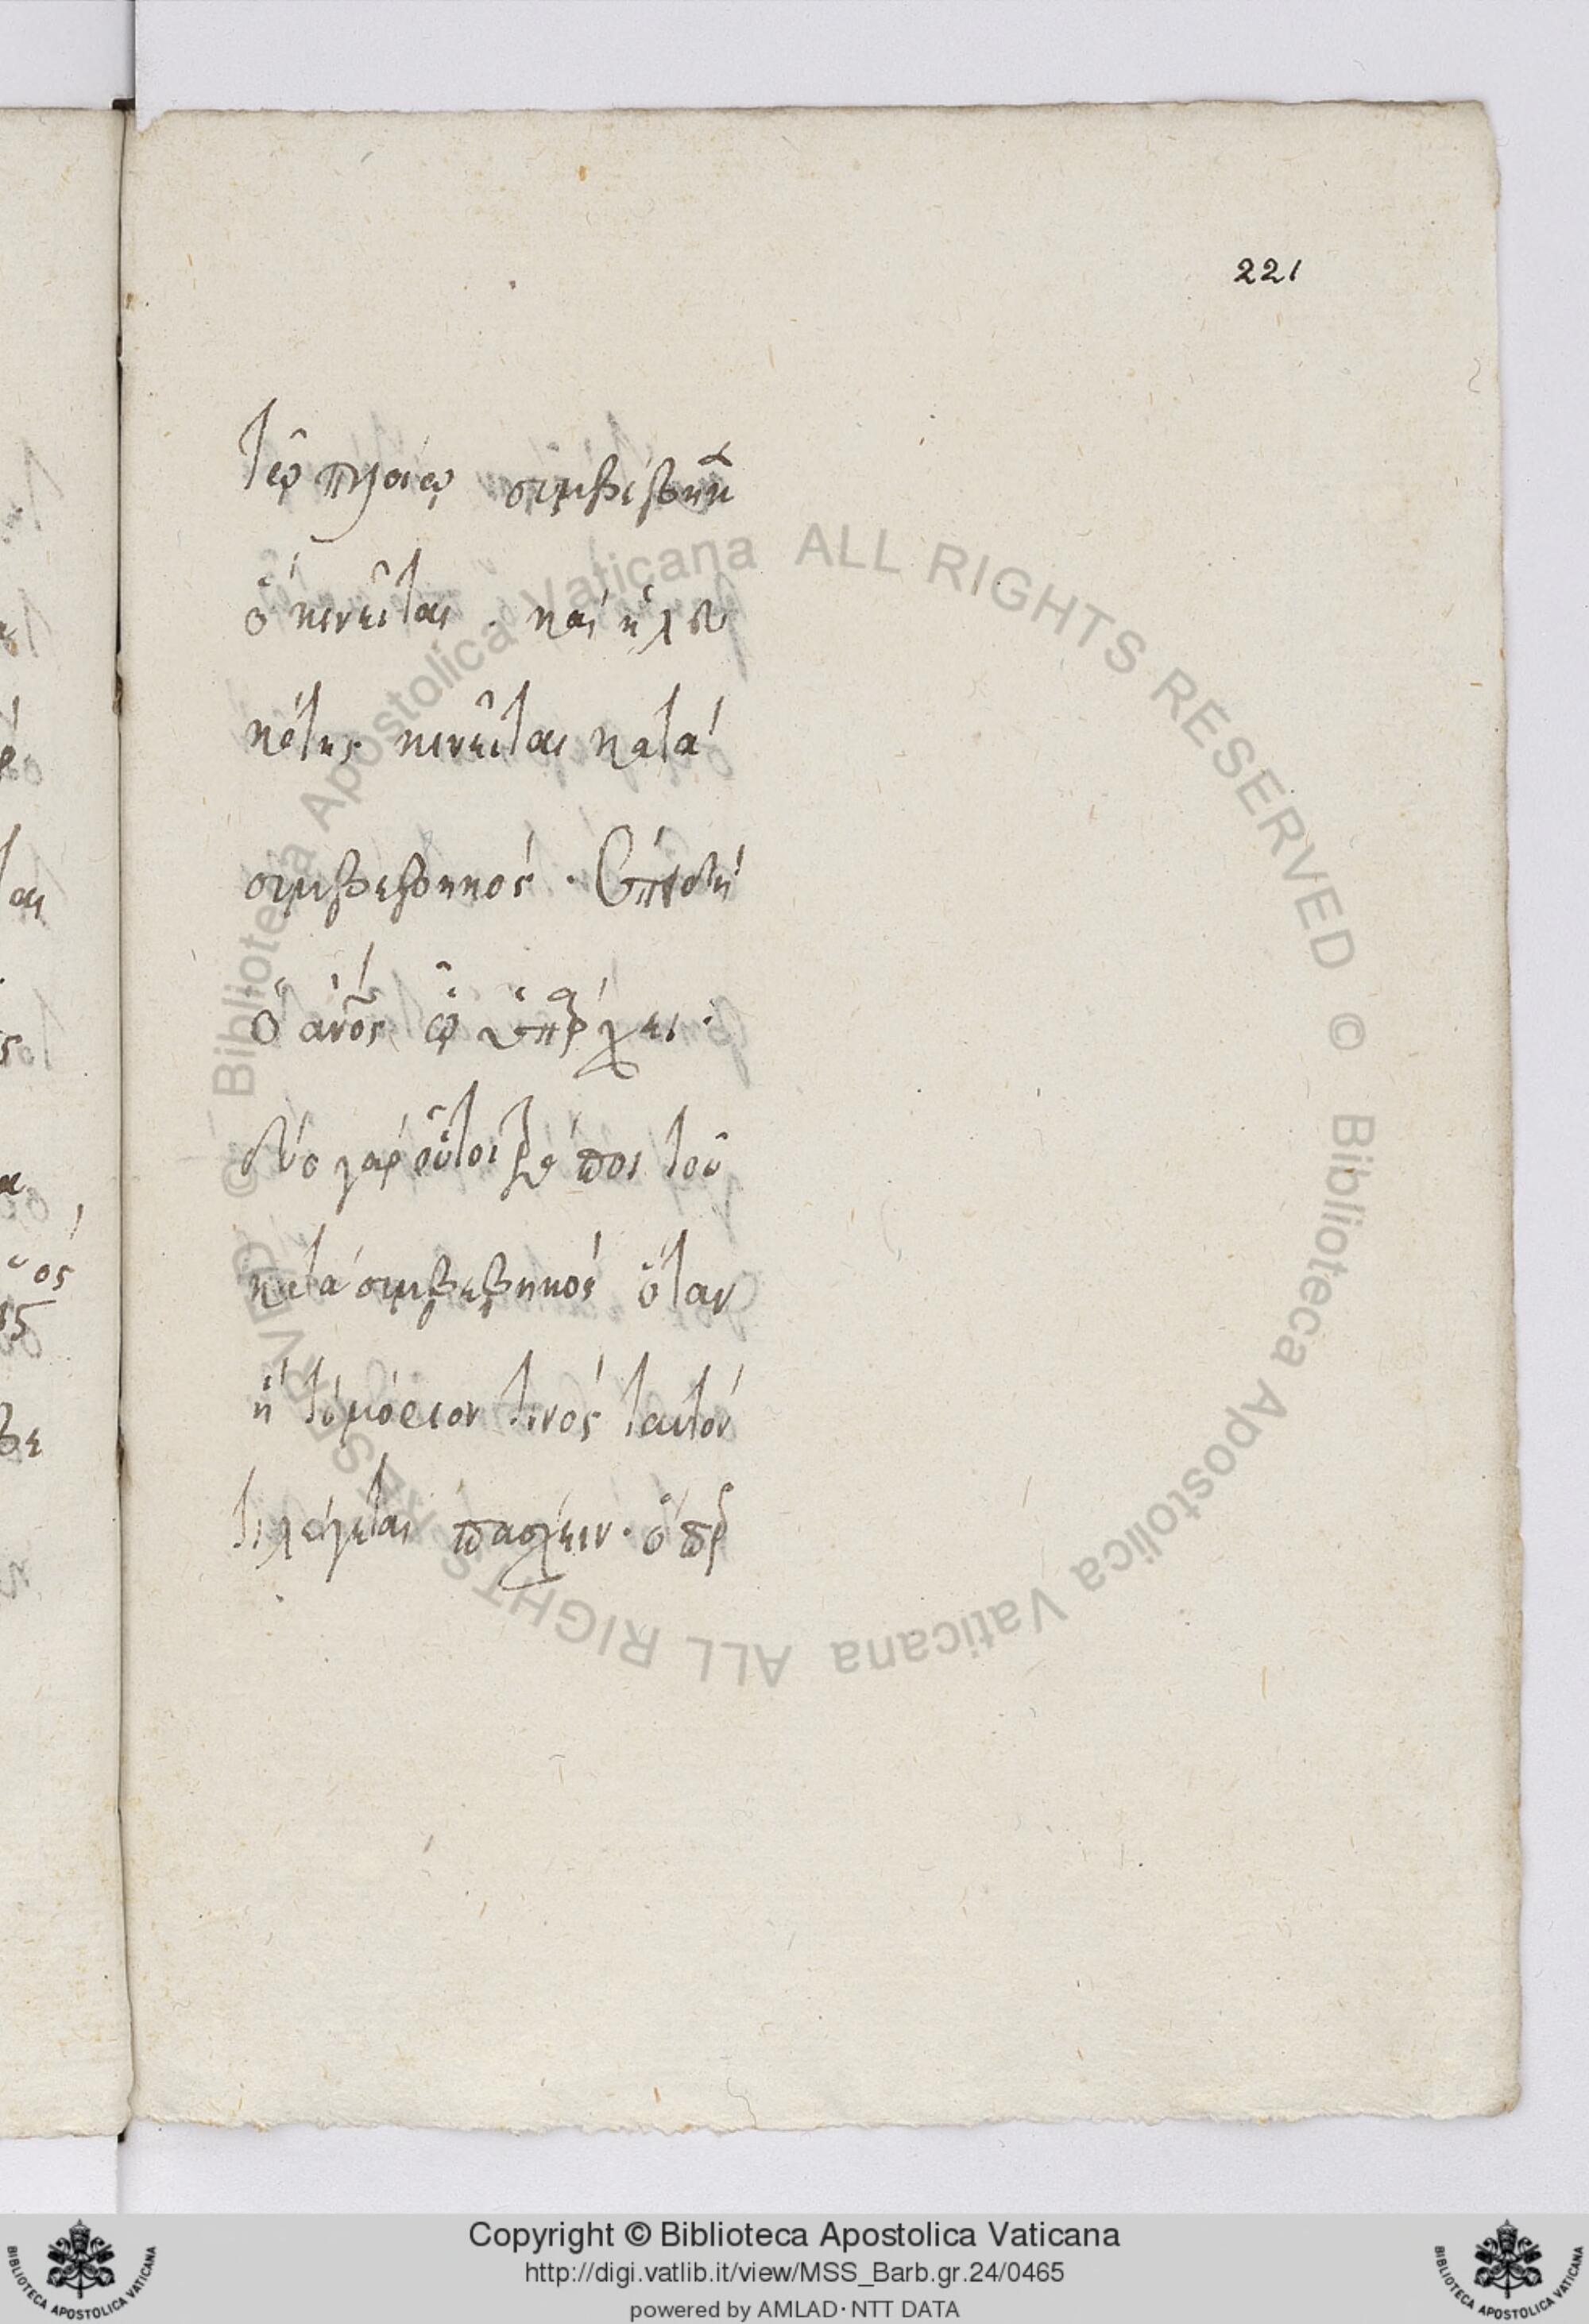 221
τῷ πλοίῳ συμβέβηκ
ὃ κινεῖται. καὶ ἡ λευ
κότης κινεῖται κατὰ
συμβεβηκός. ἐπειδὴ
ὁ ἄνος ᾧ ὑπάρχει.
δύο γὰρ οὗτοι τρόποι τοῦ
κατὰ συμβεβηκὸς ὅταν
ἢ τῷ μόριον τινὸς ταυτόν
τι λέγεται πάσχειν. ὅπερ
Biblioteca Apostolica Vaticana ALL RIGHTS RESERVED ©
Biblioteca Apostolica Vaticana ALL RIGHTS RESERVED ©
Copyright © Biblioteca Apostolica Vaticana
http://digi.vatlib.it/view/MSS_Barb.gr.24/0465
powered by AMLAD·NTT DATA
BIBLIOTECA APOSTOLICA VATICANA
BIBLIOTECA APOSTOLICA VATICANA